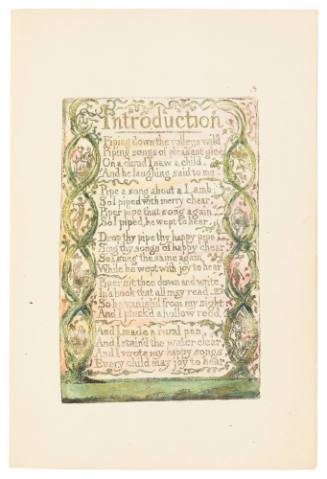 3
Introduction
Piping down the valleys wild
Piping songs of pleasant glee
On a cloud I saw a child.
And he laughing said to me.
Pipe a song about a Lamb;
So I piped with merry chear,
Piper pipe that song again—
So I piped, he wept to hear.
Drop thy pipe thy happy pipe
Sing thy songs of happy chear
So I sung the same again
While he wept with joy to hear
Piper sit thee down and write
In a book that all may read—
So he vanish'd from my sight
And I pluck'd a hollow reed.
And I made a rural pen,
And I stain'd the water clear,
And I wrote my happy songs
Every child may joy to hear